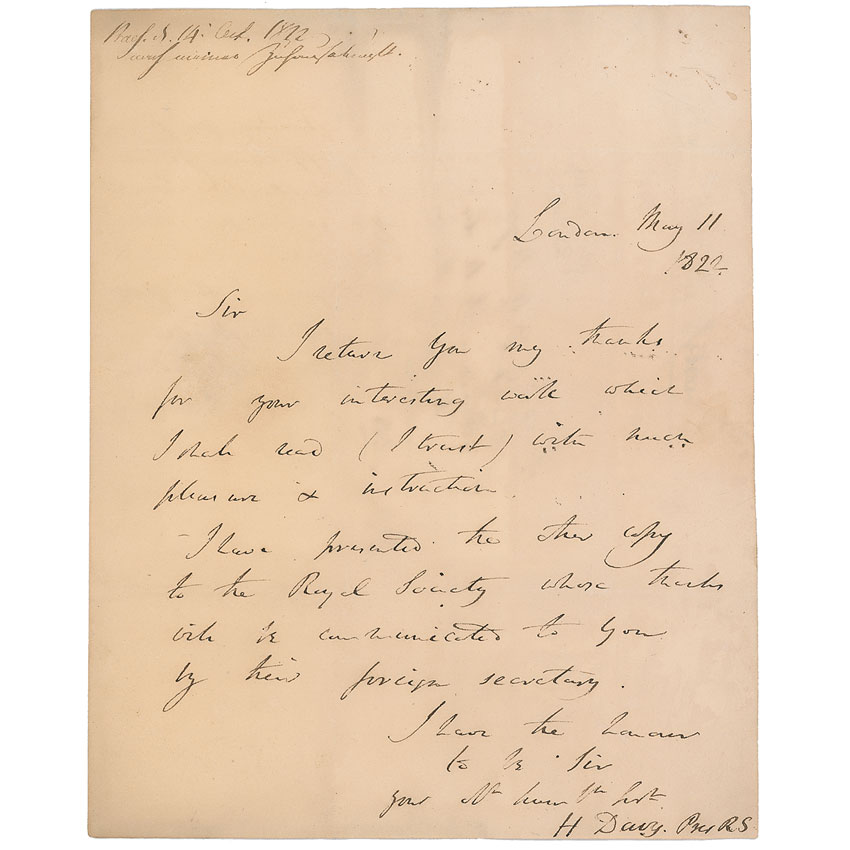 14 Oct. 1822
London. May 11
1822.
Sir
I return you my thanks
for your interesting work which
I shall read (I trust) with much
pleasure & instruction
- I have presented the other copy
to the Royal Society whose thanks
will be communicated to you
by their foreign secretary.
I have the honour
to be Sir
your obt humble servt
H Davy. Pres RS